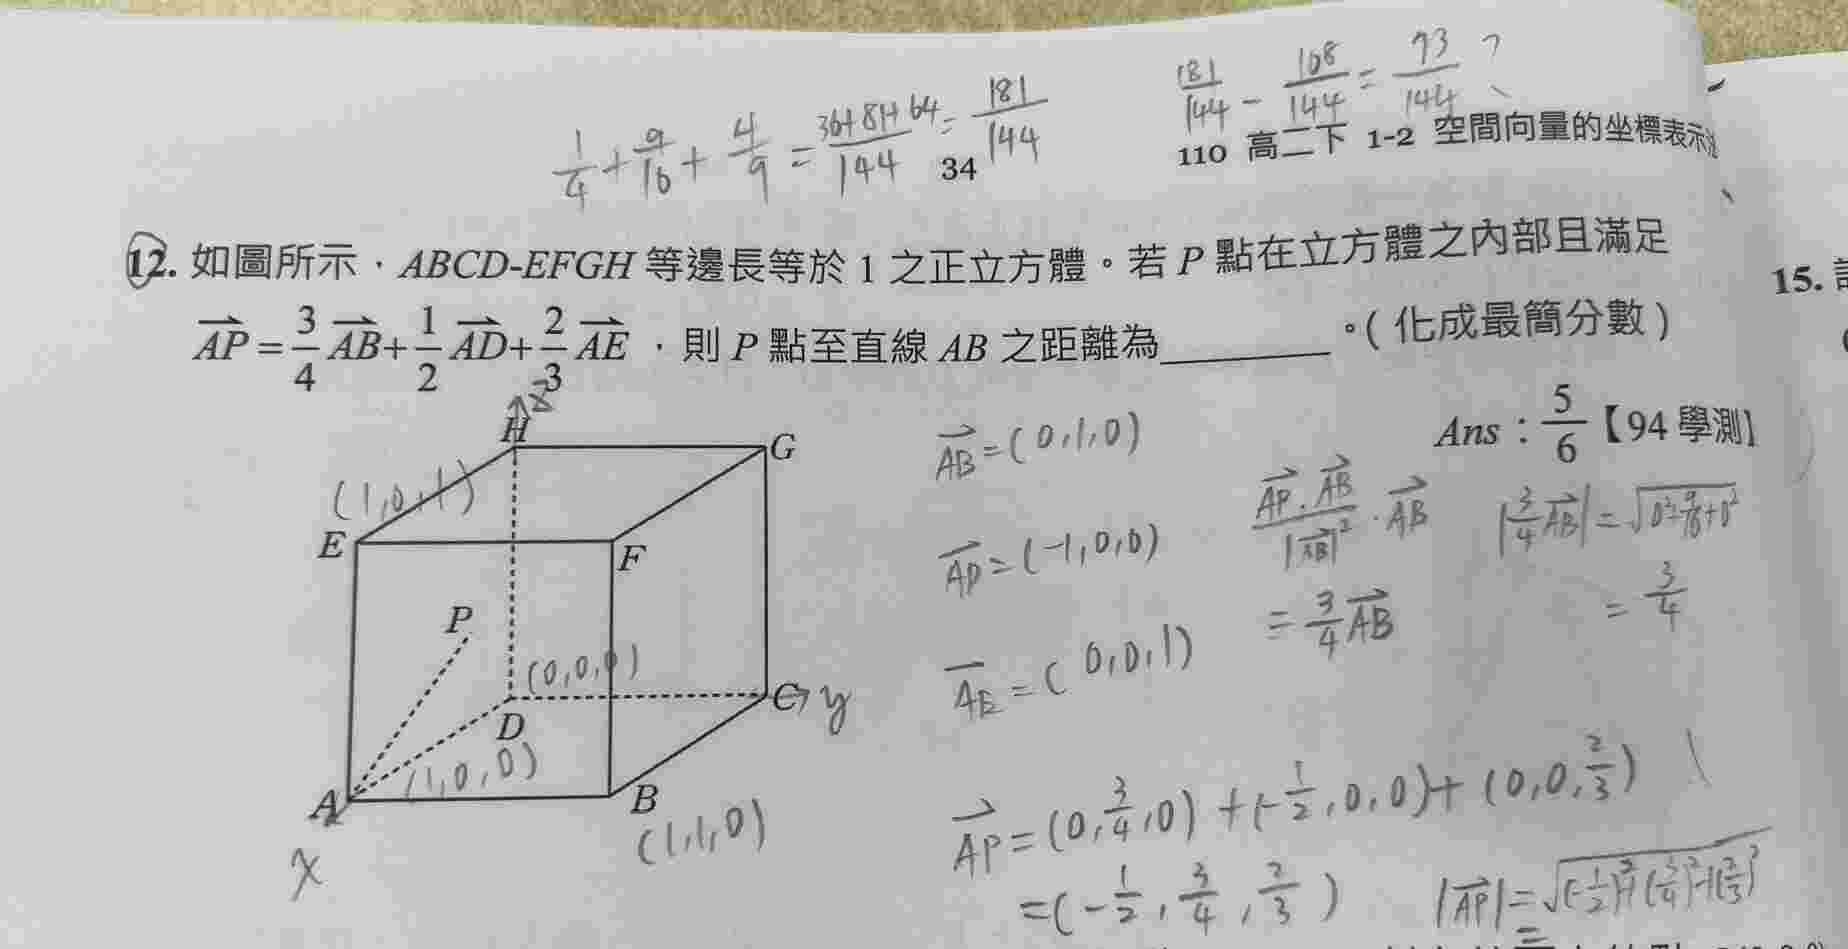 1/4 + 9/16 + 4/9 = 36+81+64/144 = 181/144
181/144 - 108/144 = 73/144 ?
34
110 高二下 1-2 空間向量的坐標表示法
12. 如圖所示，ABCD-EFGH 等邊長等於 1 之正立方體。若 P 點在立方體之內部且滿足
AP = 3/4 AB + 1/2 AD + 2/3 AE ，則 P 點至直線 AB 之距離為________。( 化成最簡分數 )
15.
Ans：5/6【94 學測】
z
H
G
(1,0,1)
E
F
P
(0,0,0)
D
C
y
A
(1,0,0)
B
(1,1,0)
x
AB = (0,1,0)
AD = (-1,0,0)
AE = (0,0,1)
AP·AB/|AB|² · AB
= 3/4 AB
|3/4 AB| = √0²+9/16+0²
= 3/4
AP = (0,3/4,0) + (-1/2,0,0) + (0,0,2/3)
= (-1/2, 3/4, 2/3)
|AP| = √(-1/2)²+(3/4)²+(2/3)²
=